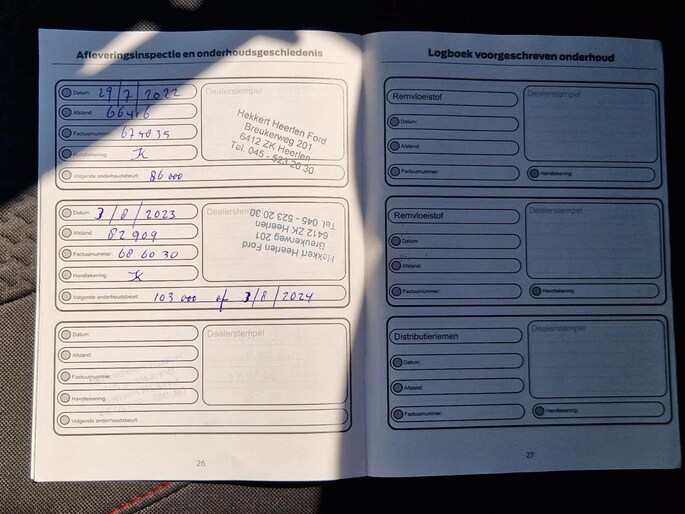 Afleveringsinspectie en onderhoudsgeschiedenis
Datum: 29/7/2022
Afstand: 66416
Factuurnummer: 674035
Handtekening:
Volgende onderhoudsbeurt: 86 000
Dealerstempel
Hekkert Heerlen Ford
Breukerweg 201
6412 ZK Heerlen
Tel. 045 - 523 20 30
Datum: 3/8/2023
Afstand: 82909
Factuurnummer: 686030
Handtekening:
Volgende onderhoudsbeurt: 103 000 of 3/8/2024
Dealerstempel
Hekkert Heerlen Ford
Breukerweg 201
6412 ZK Heerlen
Tel. 045 - 523 20 30
Datum:
Afstand:
Factuurnummer:
Handtekening:
Volgende onderhoudsbeurt:
Dealerstempel
26
Logboek voorgeschreven onderhoud
Remvloeistof
Datum:
Afstand:
Factuurnummer:
Dealerstempel
Handtekening:
Remvloeistof
Datum:
Afstand:
Factuurnummer:
Dealerstempel
Handtekening:
Distributieriemen
Datum:
Afstand:
Factuurnummer:
Dealerstempel
Handtekening:
27